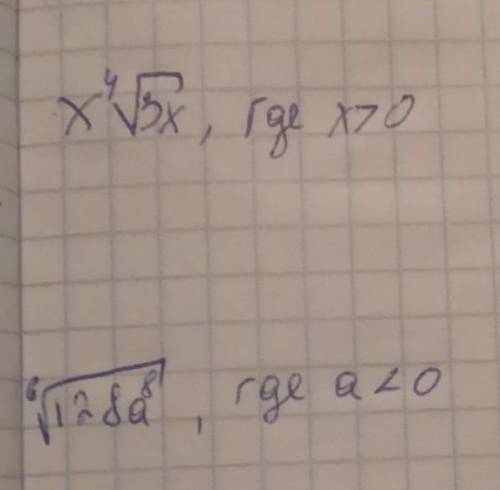 x⁴√3x, где x>0
⁶√128a⁸, где a<0